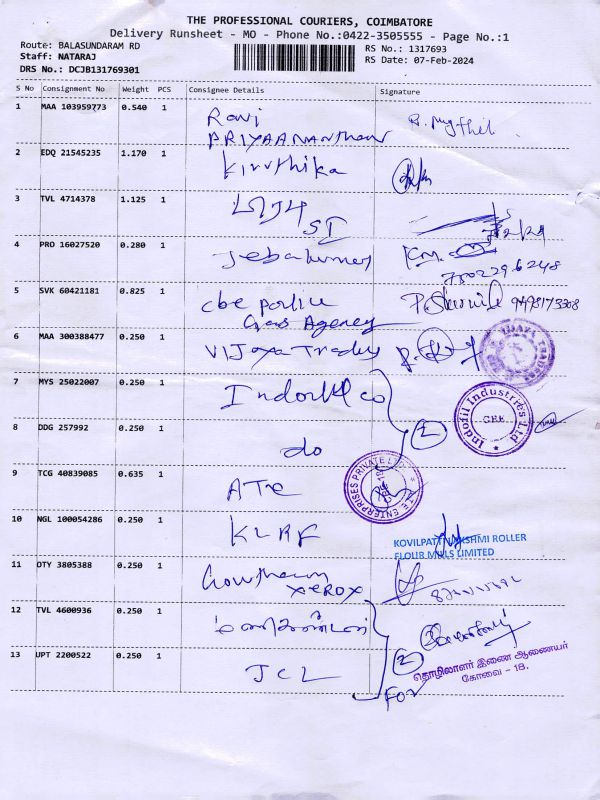 THE PROFESSIONAL COURIERS, COIMBATORE
Delivery Runsheet - MO - Phone No.:0422-3505555 - Page No.:1
Route: BALASUNDARAM RD
RS No.: 1317693
Staff: NATARAJ
RS Date: 07-Feb-2024
DRS No.: DCJB131769301
S No Consignment No Weight PCS Consignee Details Signature
1 MAA 103959773 0.540 1 Ravi
PRIYAANANTHAN
2 EDQ 21545235 1.170 1 Kiruthika
3 TVL 4714378 1.125 1
ST
4 PRO 16027520 0.280 1 Jebakumar
7502296248
5 SVK 60421181 0.825 1 cbe police
Gas Agency
6 MAA 300388477 0.250 1 VIJaya Traders
7 MYS 25022007 0.250 1 Indofil co
Indofil Industries Ltd
CBE
8 DDG 257992 0.250 1 do
2
9 TCG 40839085 0.635 1 ATE
ENTERPRISES PRIVATE
10 NGL 100054286 0.250 1 KLRF
KOVILPATTI LAKSHMI ROLLER
FLOUR MILLS LIMITED
11 OTY 3805388 0.250 1 Gowtham
xerox
12 TVL 4600936 0.250 1 மணிகண்டன்
13 UPT 2200522 0.250 1 JCL
2
தொழிலாளர் இணை ஆணையர்
கோவை - 18.
FOR